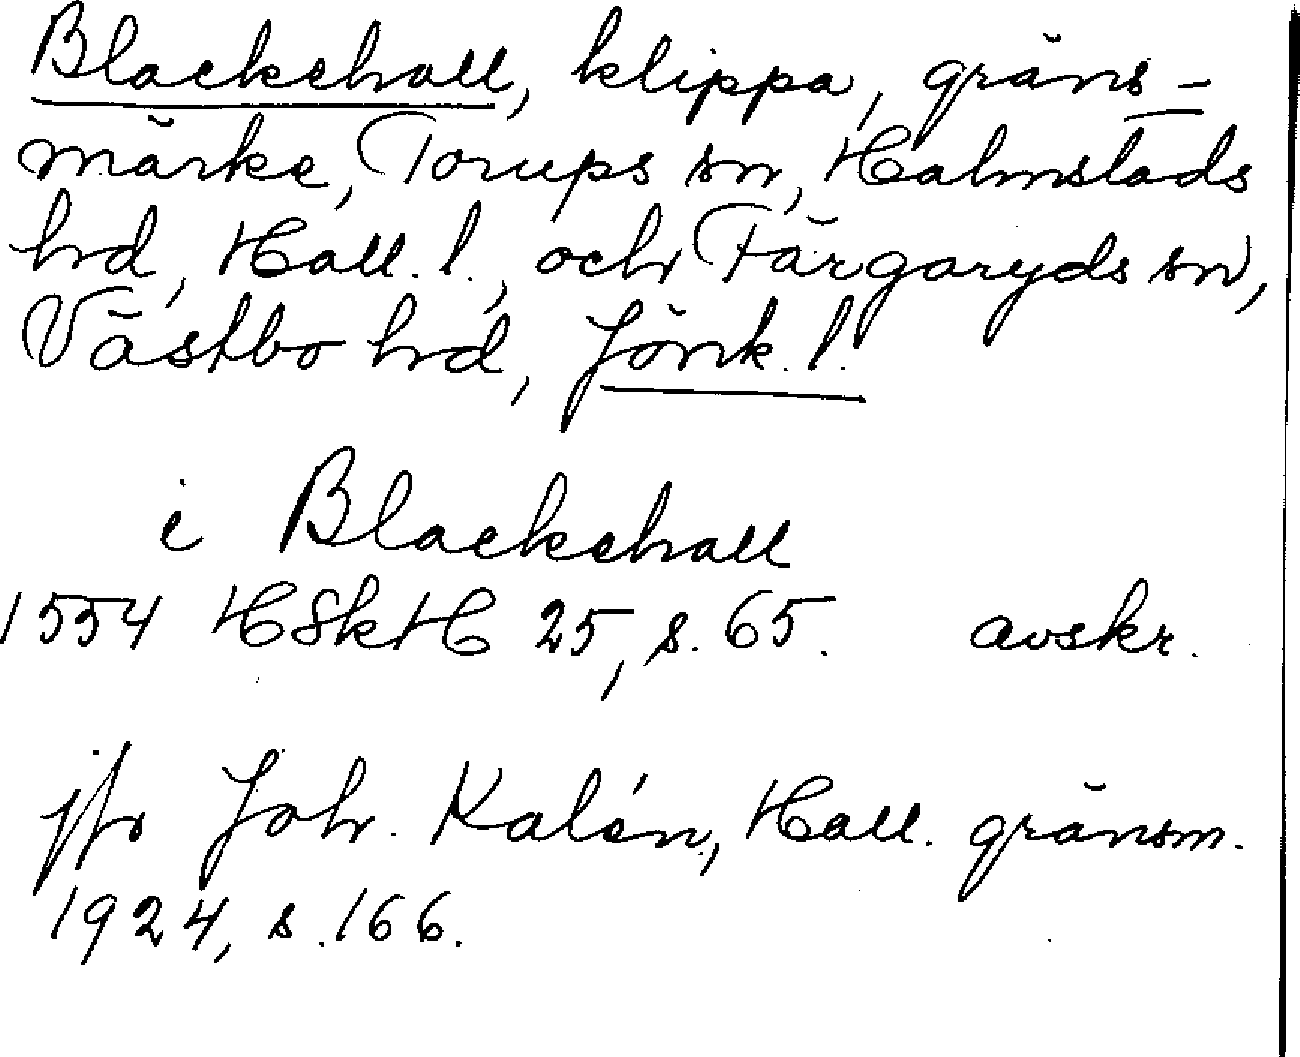 Blackehall, klippa, gräns-
märke, Torups sn, Halmstads
hd, Hall. l., och Färgaryds sn,
Västbo hd, Jönk. l.
i Blackehall
1554 HSkH 25, s. 65. avskr.
jfr Joh. Kalén, Hall. gränsm.
1924, s. 166.